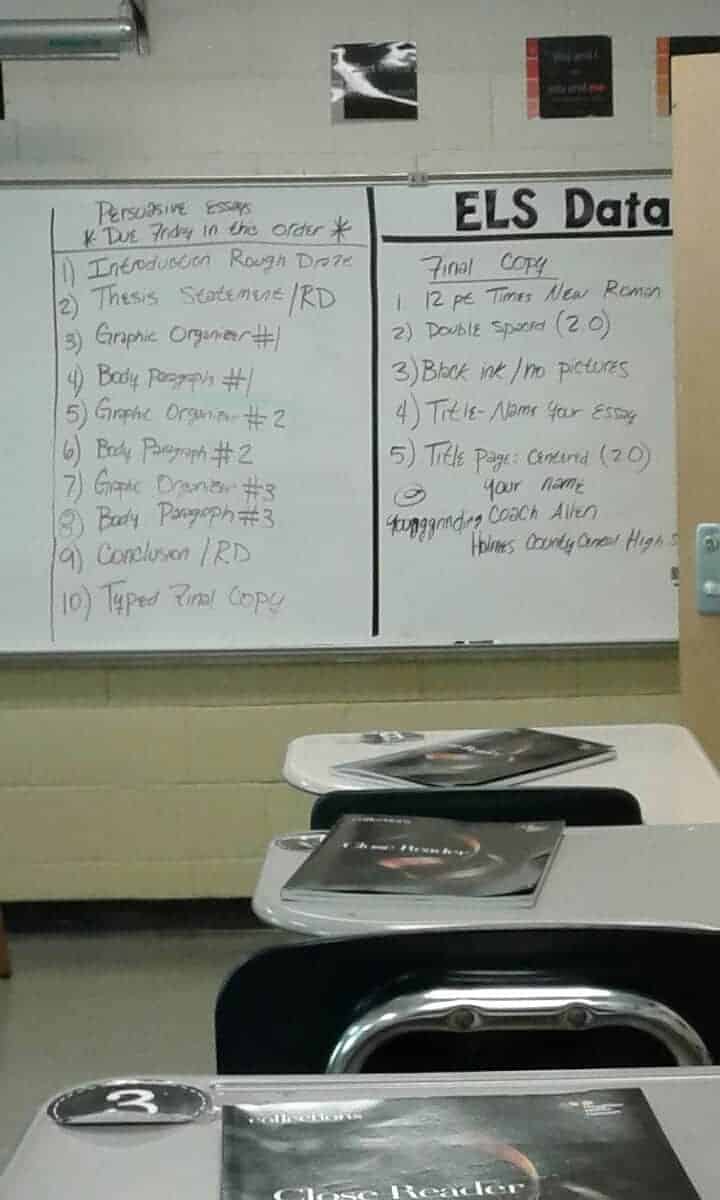 Persuasive Essays
* Due Friday in this order *
1) Introduction Rough Draft
2) Thesis Statement/RD
3) Graphic Organizer #1
4) Body Paragraph #1
5) Graphic Organizer #2
6) Body Paragraph #2
7) Graphic Organizer #3
8) Body Paragraph #3
9) Conclusion/RD
10) Typed Final Copy
ELS Data
Final Copy
1 12 pt Times New Roman
2) Double Spaced (2.0)
3) Black ink/no pictures
4) Title-Name Your Essay
5) Title Page: Centered (2.0)
Your name
Coach Allen
Holmes County Central High
you and me
Close Reader
collections
Close Reader
3
collections
Close Reader